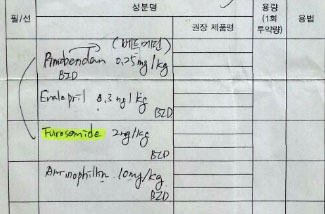 성분명
필/선
권장 제품명
용량
(1회
투약량)
용법
(베트메딘)
Pimobendan 0.25mg/kg
BID
Enalapril 0.3mg/kg
BID
Furosemide 2mg/kg
BID
Aminophyllin 10mg/kg
BID